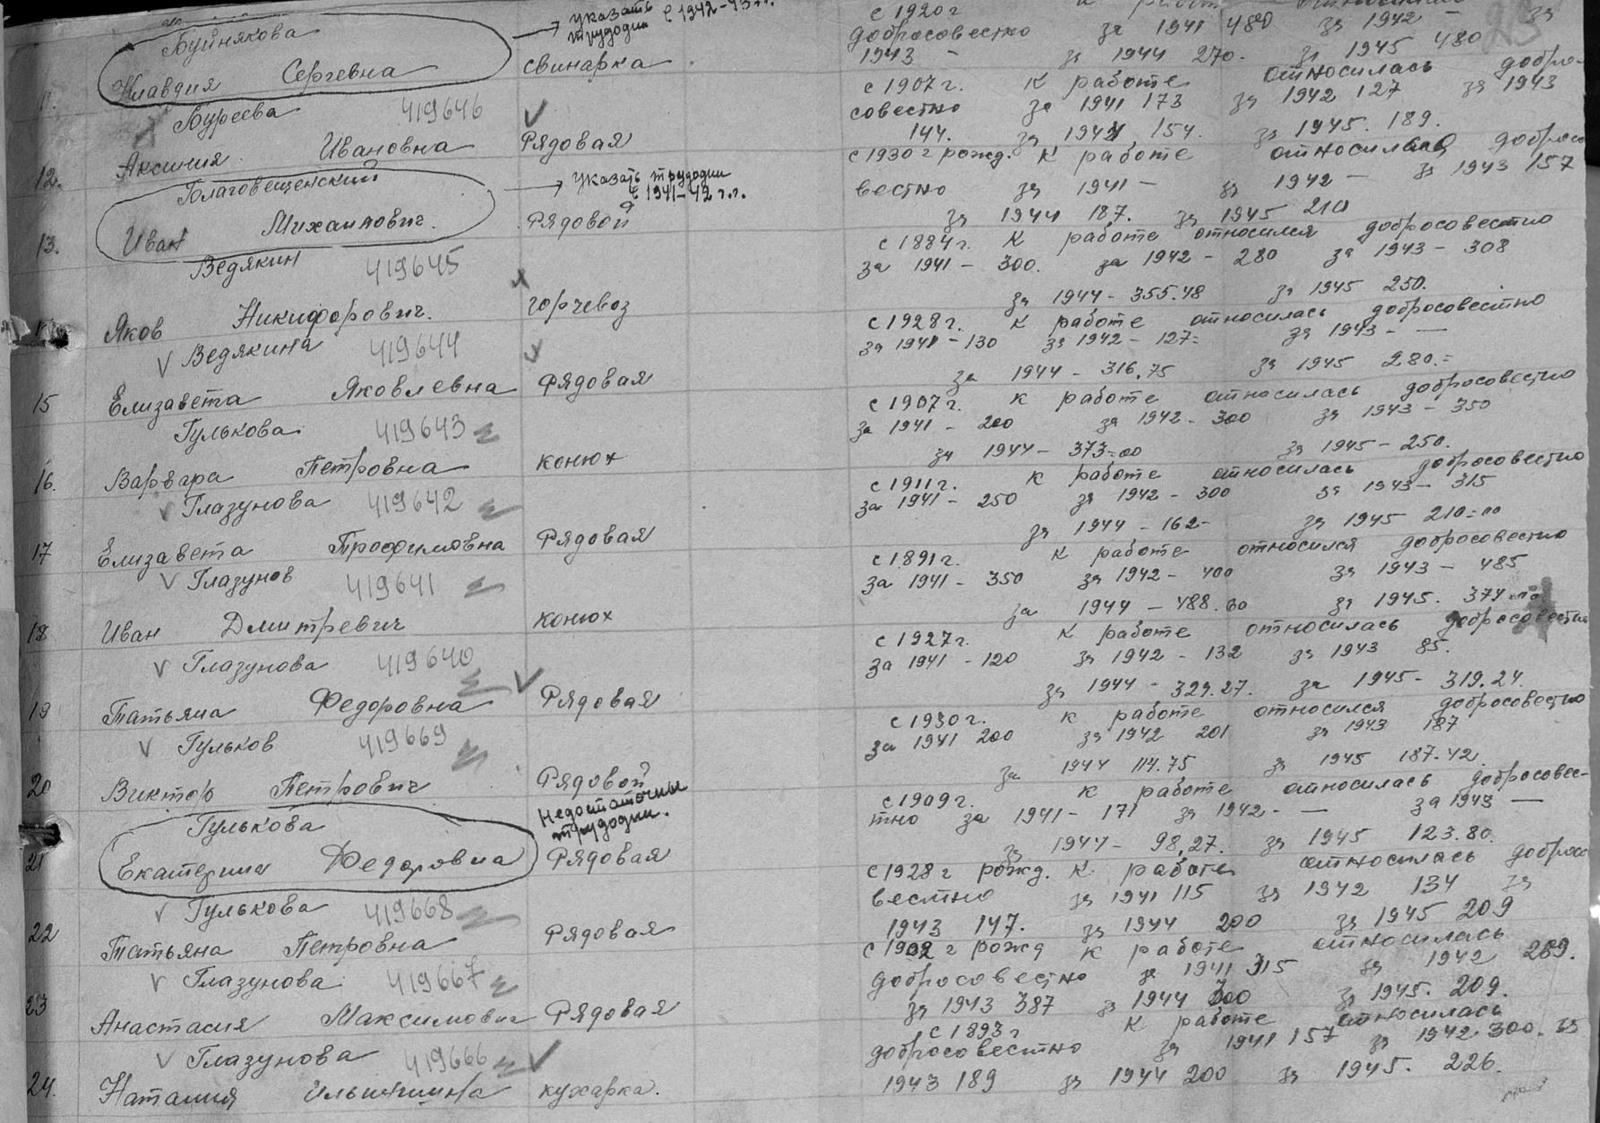 Буйнякова → указать трудодни с 1942-43 г.г.
с 1920 г к работе относилась
добросовестно за 1941 480 за 1942 — за
11. Клавдия Сергевна свинарка 1943 — за 1944 270. за 1945 480
Буреева 419646 с 1907 г. к работе относилась добро-
совестно за 1941 173 за 1942 127 за 1943
12. Аксиния Ивановна Рядовая 144. за 1944 154. за 1945. 189.
Благовещенский → указать трудодни с 1941-42 г.г.
с 1930 г рожд. к работе относилась добросо
вестно за 1941 — за 1942 — за 1943 157
13. Иван Михаилович. Рядовой за 1944 187. за 1945 210
Ведякин 419645 с 1884 г. к работе относился добросовестно
за 1941 - 300. за 1942 - 280 за 1943 - 308
Яков Никифорович. горчевоз за 1944 - 355.48 за 1945 250.
Ведякина 419644 с 1928 г. к работе относилась добросовестно
за 1941 - 130 за 1942 - 127= за 1943 - —
15 Елизавета Яковлевна Рядовая за 1944 - 316,75 за 1945 280.=
Гулькова 419643 с 1907 г. к работе относилась добросовестно
за 1941 - 200 за 1942 - 300 за 1943 - 350
16. Варвара Петровна конюх за 1944 - 373=00 за 1945 - 250.
Глазунова 419642 с 1911 г. к работе относилась добросовестно
за 1941 - 250 за 1942 - 300 за 1943 - 315
17 Елизавета Трофимовна Рядовая за 1944 - 162 - за 1945 210=00
Глазунов 419641 с 1891 г. к работе относился добросовестно
за 1941 - 350 за 1942 - 400 за 1943 - 485
18 Иван Дмитревич конюх за 1944 - 488.00 за 1945. 374
Глазунова 419640 с 1927 г. к работе относилась добросовестно
за 1941 - 120 за 1942 - 132 за 1943 85.
19 Татьяна Федоровна Рядовая за 1944 - 329.27. за 1945 - 319.24.
Гульков 419669 с 1930 г. к работе относился добросовестно
за 1941 200 за 1942 201 за 1943 187
20 Виктор Петрович Рядовой за 1944 114.75 за 1945 187.42.
Гулькова Недостаточны трудодни.
с 1909 г. к работе относилась добросовес-
тно за 1941 - 171 за 1942 - — за 1943 —
21 Екатерина Федоровна Рядовая за 1944 - 98,27. за 1945 123.80.
Гулькова 419668 с 1928 г рожд. к работе относилась добросо
вестно за 1941 115 за 1942 134 за
22 Татьяна Петровна Рядовая 1943 147. за 1944 200 за 1945 209
Глазунова 419667 с 1902 г рожд к работе относилась
добросовестно за 1941 315 за 1942 289.
23 Анастасия Максимовна Рядовая за 1943 387 за 1944 300 за 1945. 209.
Глазунова 419666 с 1893 г к работе относилась
добросовестно за 1941 157 за 1942. 300. за
24. Наталия Ильинишна кухарка. 1943 189 за 1944 200 за 1945. 226.